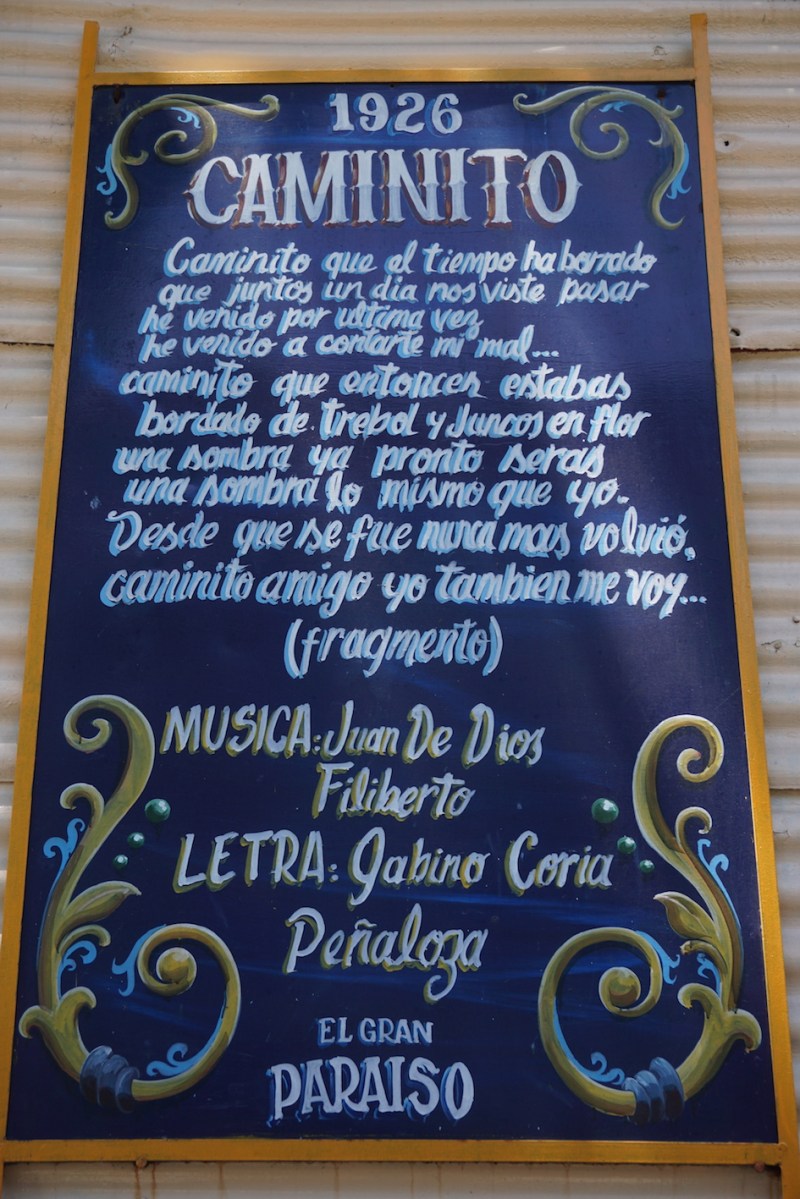 1926
CAMINITO
Caminito que el tiempo ha borrado
que juntos un dia nos viste pasar
he venido por ultima vez
he venido a contarte mi mal...
caminito que entonces estabas
bordado de trebol y Juncos en flor
una sombra ya pronto seras
una sombra lo mismo que yo.
Desde que se fue nunca mas volvió.
caminito amigo yo tambien me voy...
(fragmento)
MUSICA: Juan De Dios
Filiberto
LETRA: Gabino Coria
Peñaloza
EL GRAN
PARAISO